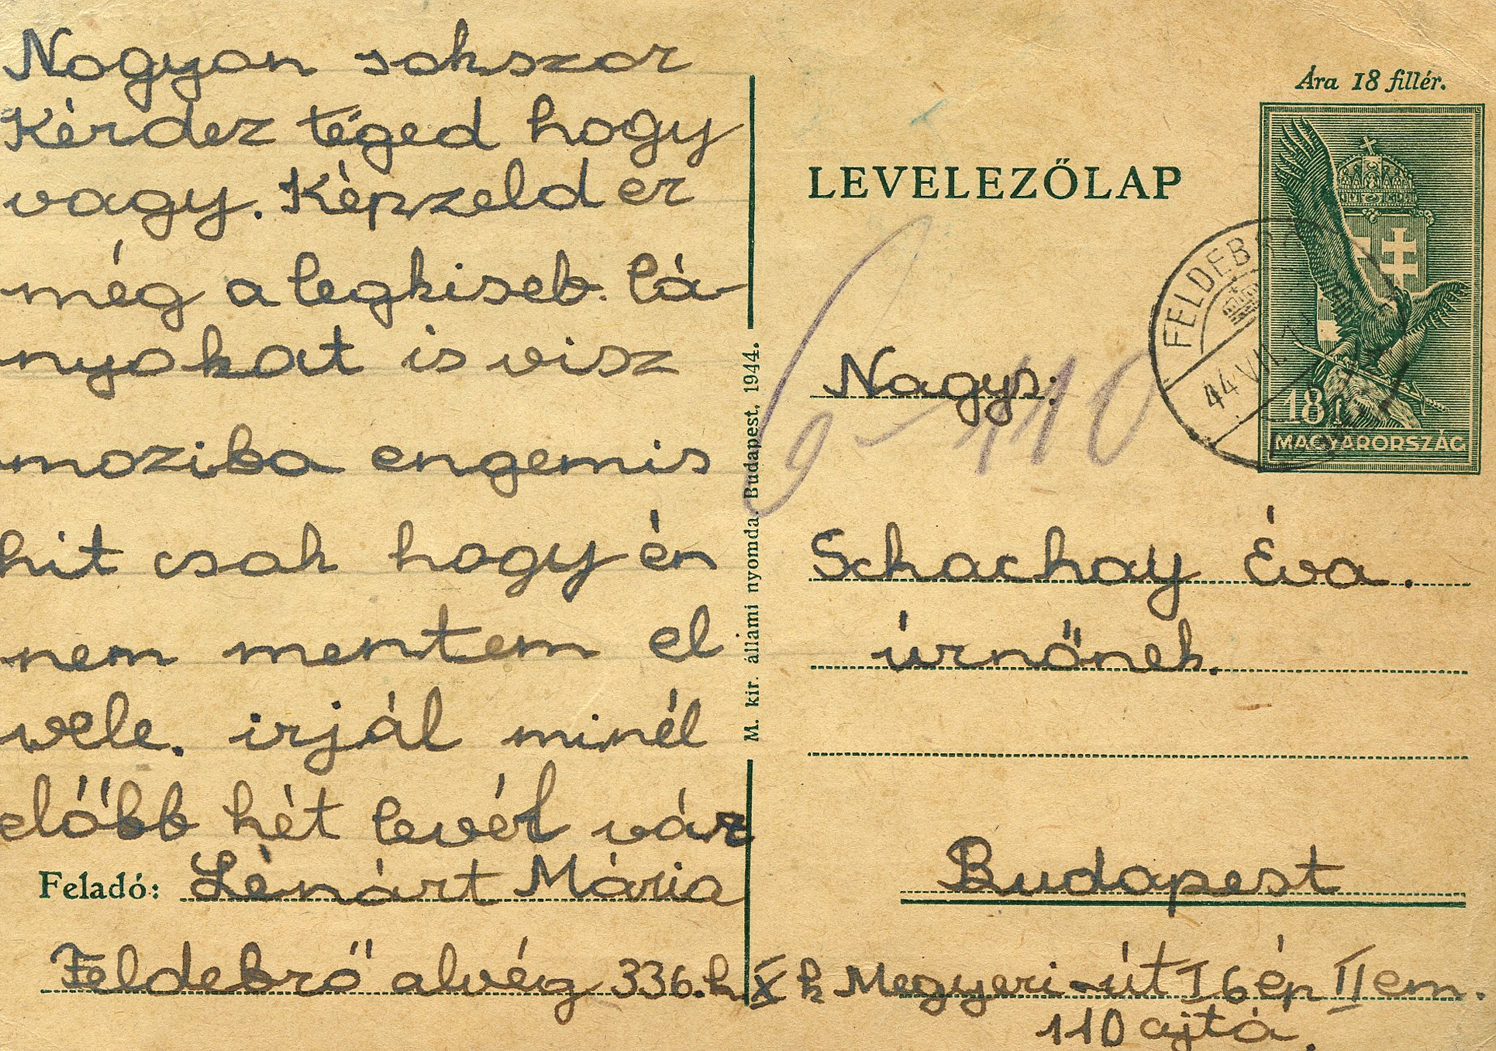 Nagyon sokszor
Kérdez téged hogy
vagy. Képzeld er
még a legkiseb. lá-
nyokat is visz
moziba engemis
hit csak hogy én
nem mentem el
vele. irjál minél
előbb hét levél vár
Feladó: Lénárt Mária
Feldebrő alvég 336.h
M. kir. állami nyomda. Budapest, 1944.
Ára 18 fillér.
LEVELEZŐLAP
18f
MAGYARORSZÁG
FELDEBRŐ
44 VII
6-110
Nagys:
Schachay Éva.
úrnőnek.
Budapest
X k Megyeri-út I 6 ép II em.
110 ajtó.